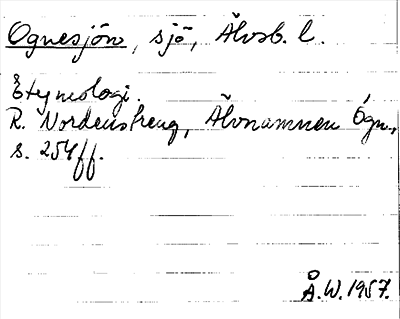 Ognesjön, sjö, Älvsb. l.
Etymologi.
R. Nordenstreng, Älvnamnen Ógn.,
s. 254ff.
Å.W. 1957.